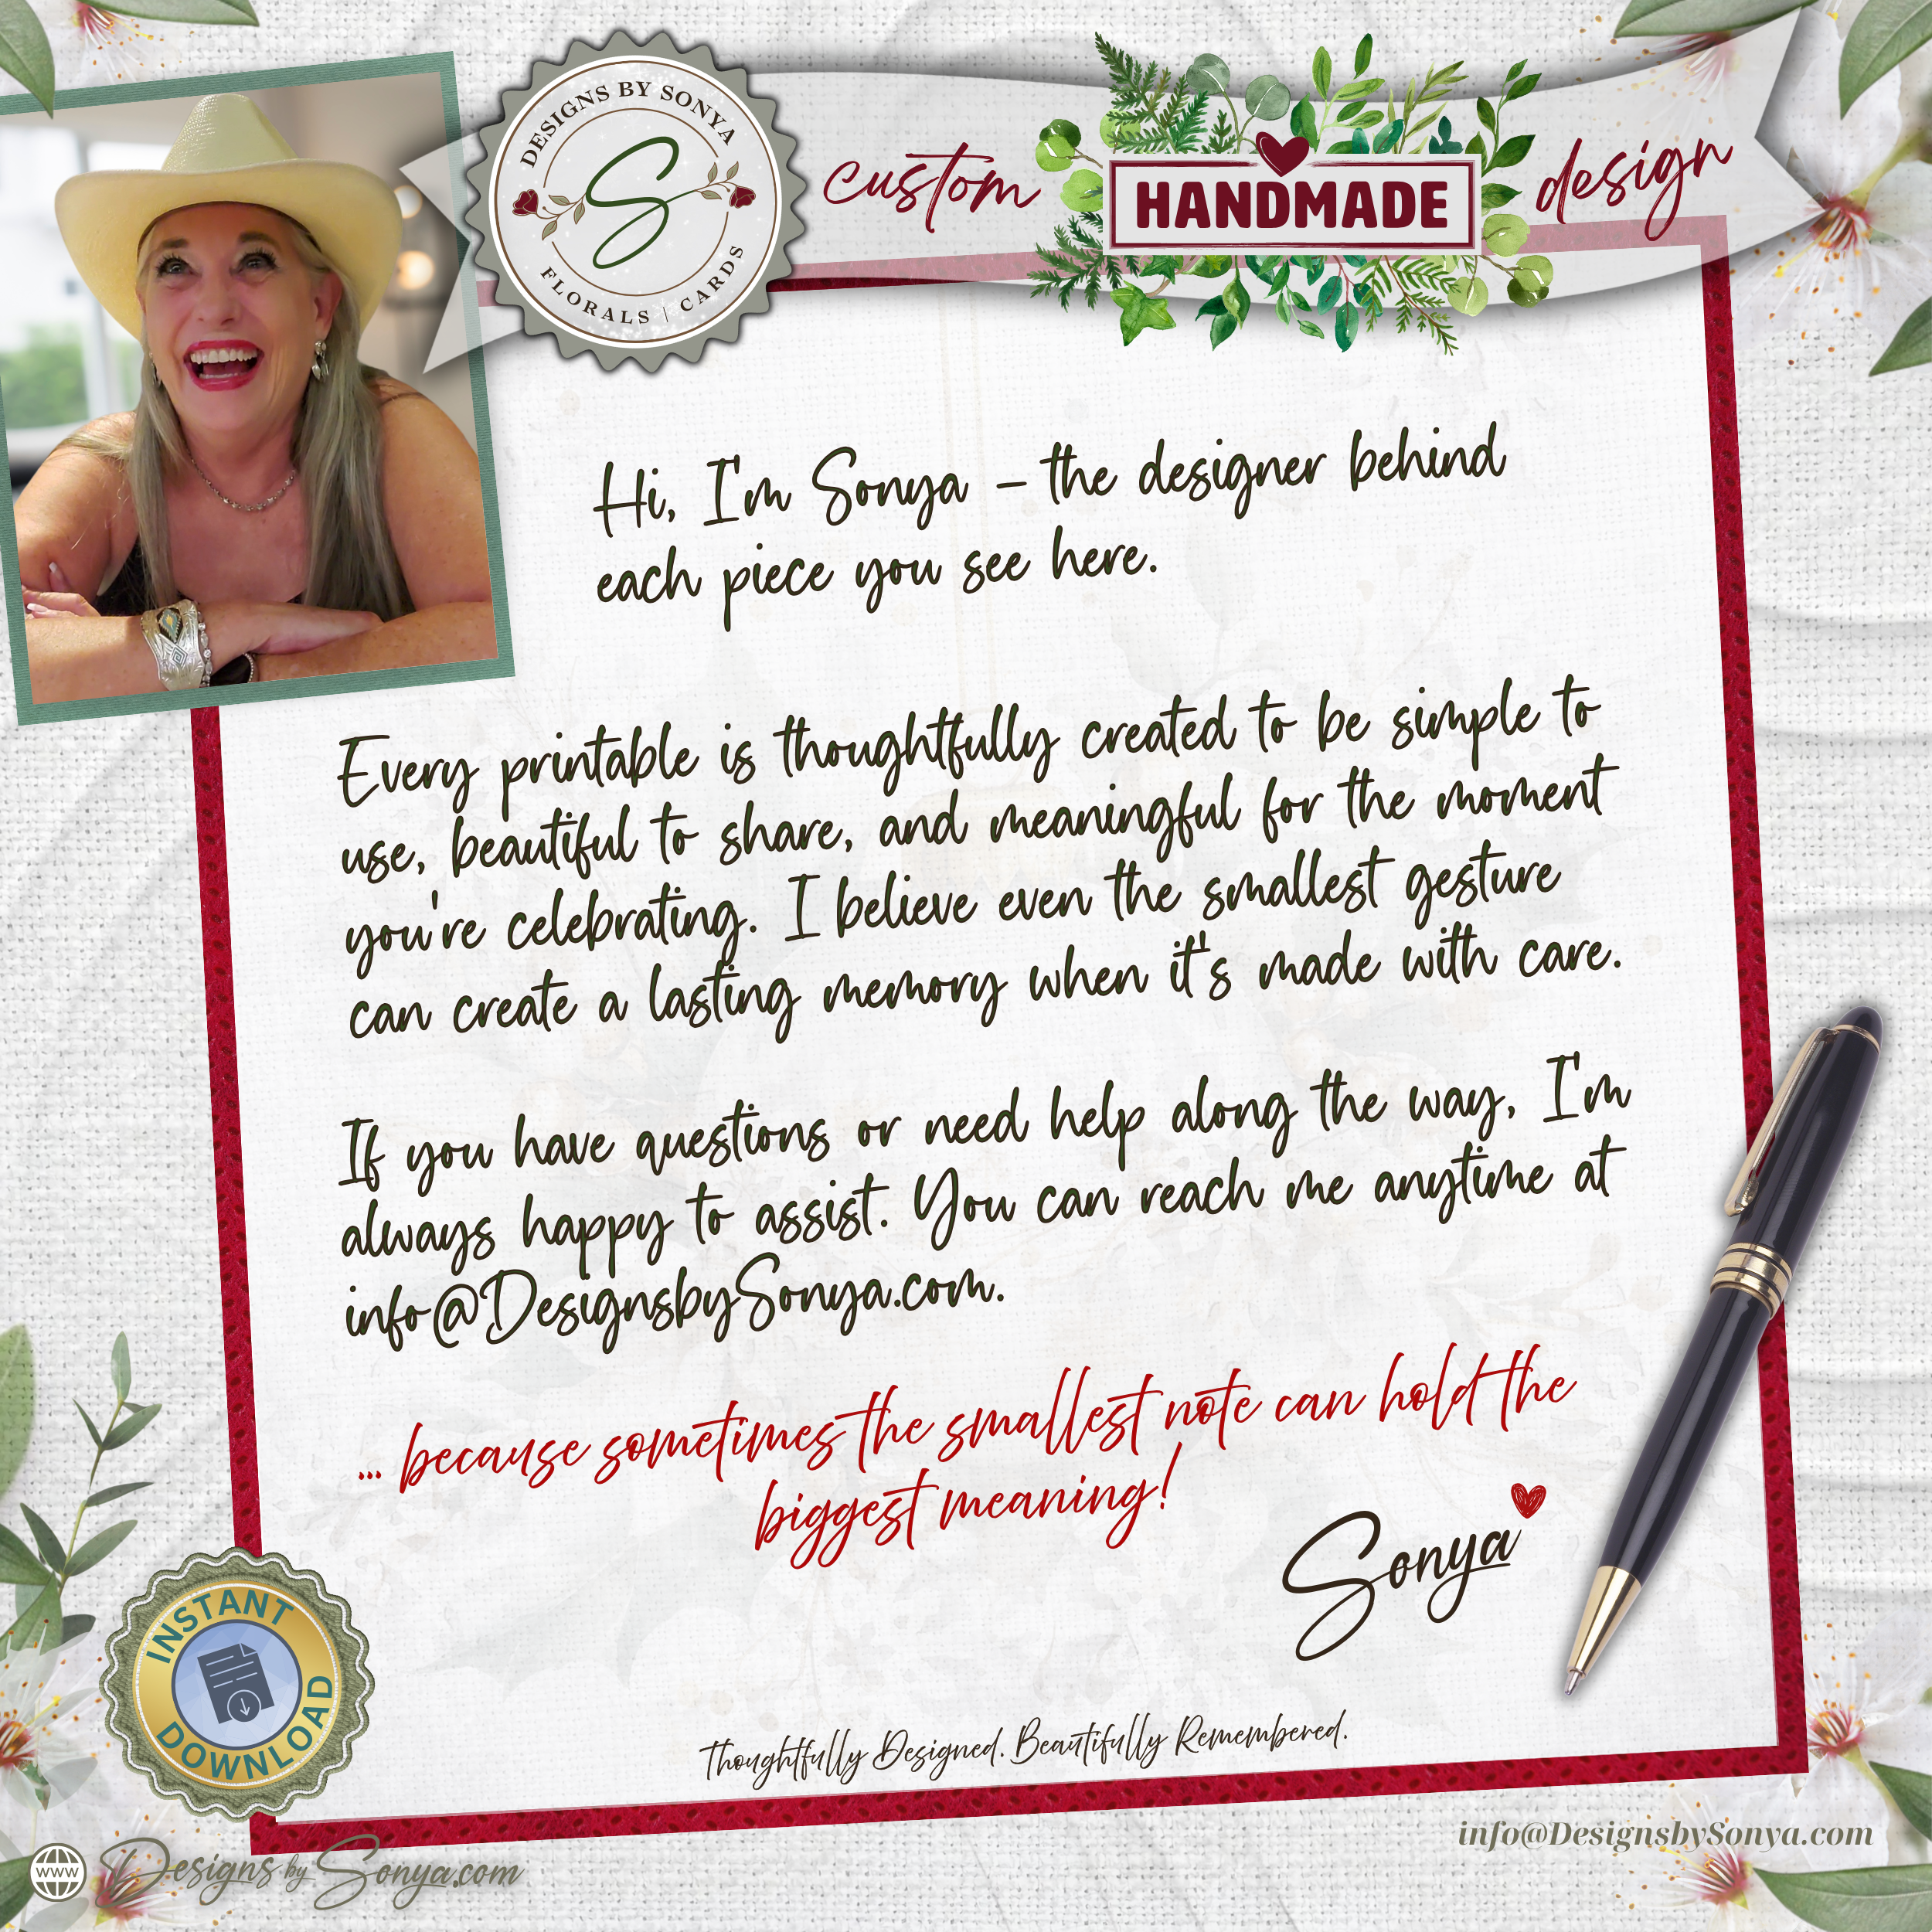 DESIGNS BY SONYA
S
FLORALS | CARDS
custom
HANDMADE
design
Hi, I'm Sonya – the designer behind
each piece you see here.
Every printable is thoughtfully created to be simple to
use, beautiful to share, and meaningful for the moment
you're celebrating. I believe even the smallest gesture
can create a lasting memory when it's made with care.
If you have questions or need help along the way, I'm
always happy to assist. You can reach me anytime at
info@DesignsbySonya.com.
... because sometimes the smallest note can hold the
biggest meaning!
Sonya
INSTANT
DOWNLOAD
Thoughtfully Designed. Beautifully Remembered.
info@DesignsbySonya.com
www
Designs by Sonya.com